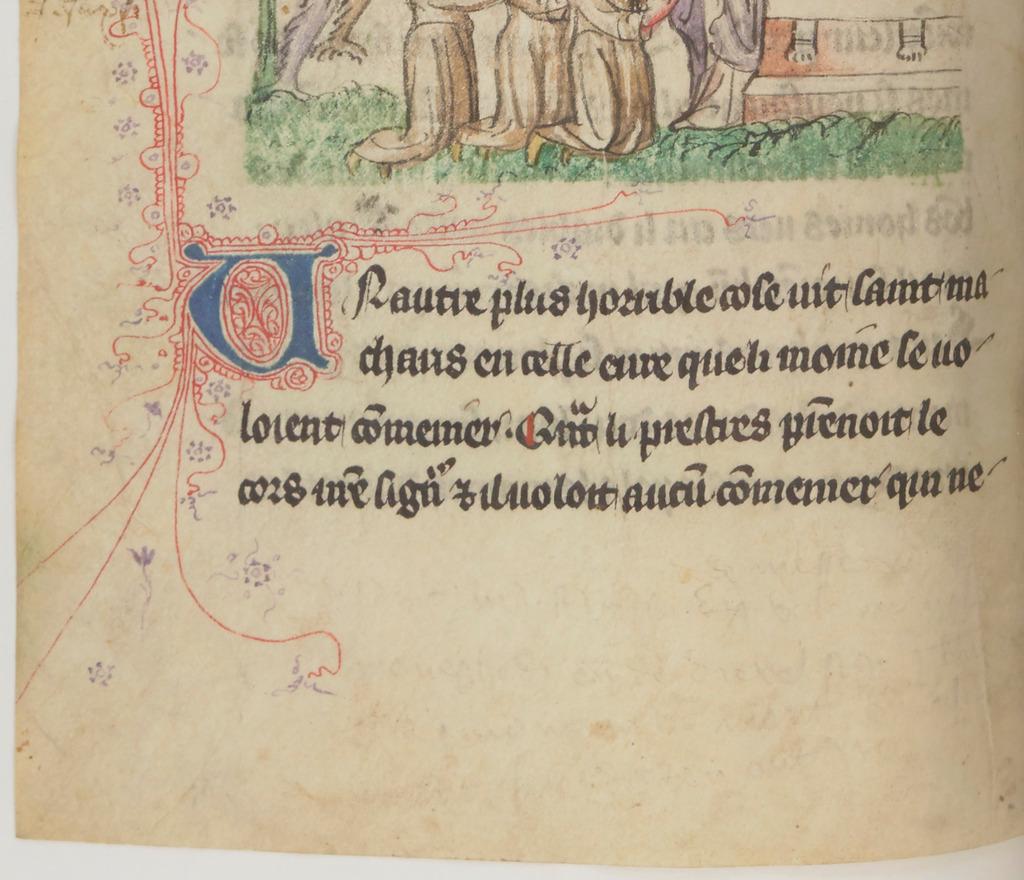 UN autre plus horrible cose vit saint ma
chaus en celle eure que li moine se vo
loient cōmenier. Qⁿt li prestres p̄noit le
cors nr̄e sign̄ ⁊ il voloit aucū cōmenier qui ne